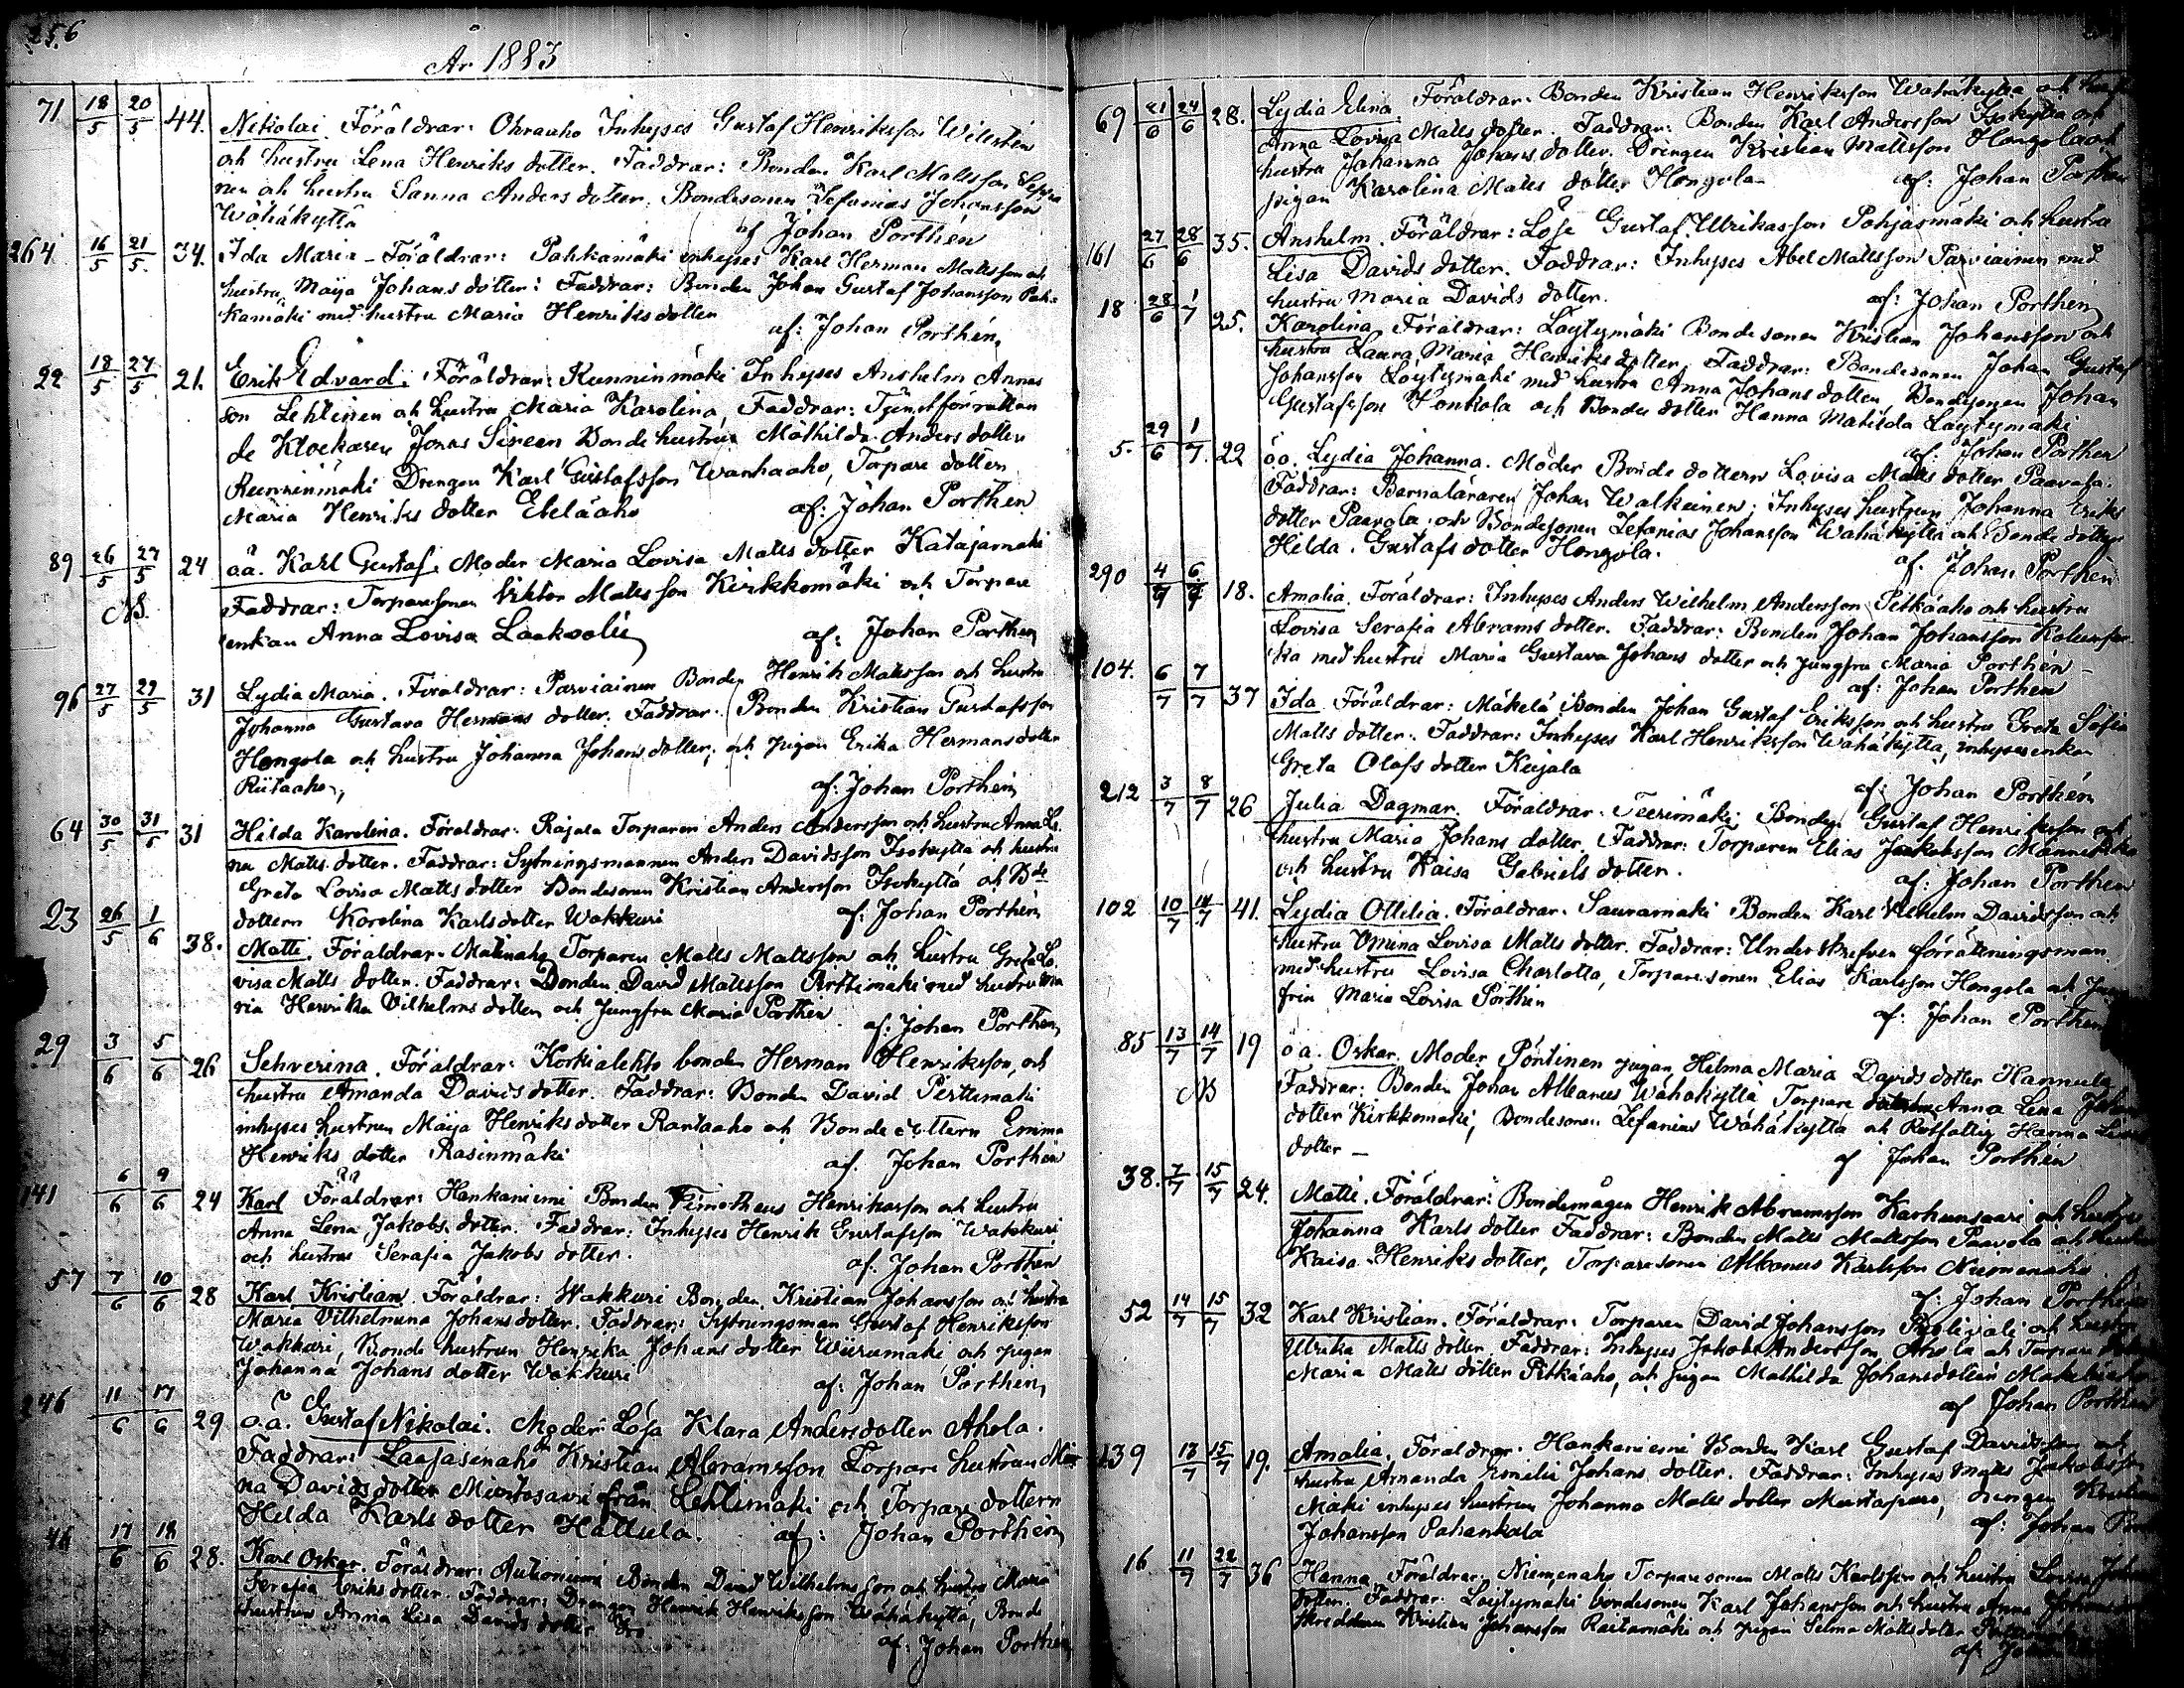 256
År 1883
71 18/5 20/5 44. Nikolai. Föräldrar: Ohraaho Inhyses Gustaf Henriksson Wilestén
och hustru Lena Henriks dotter. Faddrar: Bonden Karl Mattsson
nen och hustru Sanna Anders dotter, Bondesonen Zefanias Johansson
Wähäkyttä af Johan Porthén
264 16/5 21/5. 34. Ida Maria - Föräldrar: Pahkamäki inhyses Karl Herman Mattsson och
hustru Maija Johans dotter: Faddrar: Bonden Johan Gustaf Johansson Pah-
kamäki med hustru Maria Henriks dotter af: Johan Porthén,
22 18/5 27/5 21. Erik Edvard. Föräldrar: Kunninmäki Inhyses Anshelm Annas
son Lehtinen och hustru Maria Karolina, Faddrar: Tjenstförrättan
de Klockaren Jonas Bonde hustrun Mathilda Anders dotter
Drengen Karl Gustafsson Wanhaaho, Torpare dottern
Maria Henriks dotter af: Johan Porthén
89 26/5 27/5 24 oä. Karl Gustaf. Moder Maria Lovisa Matts dotter Katajamäki
NB. Faddrar: Torparesonen Viktor Mattsson Kirkkomäki och Torpare
enkan Anna Lovisa af: Johan Porthén
96 27/5 29/5 31 Lydia Maria. Föräldrar: Parviainen Bonden Henrik Mattsson och hustru
Johanna Gustava Hermans dotter. Faddrar: Bonden Kristian Gustafsson
Hongola och hustru Johanna Johans dotter, och pigan Erika Hermans dotter
Riitaaho, af: Johan Porthén
64 30/5 31/5 31 Hilda Karolina. Föräldrar: Rajala Torparen Anders Andersson och hustru Anna Le-
na Matts dotter. Faddrar: Sytningsmannen Anders Davidsson Isokyttä och hustru
Greta Lovisa Matts dotter Bondesonen Kristian Andersson Isokyttä och Bde
dottern Karolina Karlsdotter Wakkuri af: Johan Porthén
23 26/5 1/6 38. Matti. Föräldrar: Torparen Matts Mattsson och hustru Greta Lo-
visa Matts dotter. Faddrar: Bonden David Mattsson Pirttimäki med hustru Ma
ria Henrika Vilhelms dotter och Jungfru Maria Porthén af: Johan Porthén
29 3/6 5/6 26 Sehverina. Föräldrar: Korkialehto bonden Herman Henriksson, och
hustru Amanda Davids dotter. Faddrar: Bonden David
inhyses hustrun Maija Henriks dotter Rantaaho och Bonde dottern Emma
Henriks dotter Rasinmäki af. Johan Porthén
141 6/6 9/6 24 Karl Föräldrar: Hankaniemi Bonden Timotheus Henriksson och hustru
Anna Lena Jakobs dotter. Faddrar: Inhyses Henrik Gustafsson Wakkuri
och hustru Serafia Jakobs dotter. af: Johan Porthén
57 7/6 10/6 28 Karl Kristian. Föräldrar: Wakkuri Bonden Kristian Johansson och hustru
Maria Vilhelmina Johans dotter. Faddrar: Sytningsman Gustaf Henriksson
Wakkuri, Bonde hustrun Henrika Johans dotter Wiirumäki och pigan
Johanna Johans dotter Wakkuri af: Johan Porthén,
246 11/6 17/6 29 o.ä. Gustaf Nikolai. Moder Lösa Klara Andersdotter Ahola.
Faddrar: Kristian Abramsson Torpare hustrun Mi-
na Davids dotter från Lehtimäki och Torpare dottern
Hilda Karls dotter Hattula. af: Johan Porthén
46 17/6 18/6 28. Karl Oskar. Föräldrar: Autioniemi Bonden David Wilhelmsson och hustru Maria
Serafia Eriks dotter. Faddrar: Drengen Henrik Henriksson Wähäkyttä, Bonde
hustrun Anna Lisa Davids dotter
af: Johan Porthén
69 21/6 24/6 28. Lydia Elina Föräldrar: Bonden Kristian Henriksson Wähäkyttä och
Anna Lovisa Matts dotter. Faddrar: Bonden Karl Andersson Isokyttä och
hustru Johanna Johans dotter. Drengen Kristian Mattsson Hongola och
pigan Karolina Matts dotter Hongola. af: Johan Porthén
161 27/6 28/6 35. Anshelm. Föräldrar: Löse Gustaf Ulrikasson Pohjasmäki och hustru
Lisa Davids dotter. Faddrar: Inhyses Abel Mattsson Parviainen med
hustru Maria Davids dotter. af: Johan Porthén
18 28/6 1/7 25. Karolina Föräldrar: Löytymäki Bondesonen Kristian Johansson och
hustru Laura Maria Henriks dotter, Faddrar: Bondesonen Johan Gustaf
Johansson Löytymäki med hustru Anna Johans dotter, Bondesonen Johan
Gustafsson Honkola och Bonde dotter Hanna Matilda Löytymäki
af: Johan Porthén
5. 29/6 1/7. 22 o.ä. Lydia Johanna. Moder Bonde dottern Lovisa Matts dotter Paavola.
Faddrar: Barnaläraren Johan Walkeinen, Inhyses hustrun Johanna Eriks
dotter Paavola och Bondesonen Zefanias Johansson Wähäkyttä och Bonde dottern
Hilda Gustafs dotter Hongola. af: Johan Porthén
290 4/7 6/7 18. Amalia. Föräldrar: Inhyses Anders Wilhelm Andersson Pitkäaho och hustru
Lovisa Serafia Abrams dotter. Faddrar: Bonden Johan Johansson
ka med hustru Maria Gustava Johans dotter och Jungfru Maria Porthén -
af: Johan Porthén
104. 6/7 7/7 37 Ida Föräldrar: Mäkelä Bonden Johan Gustaf Eriksson och hustru Greta Sofia
Matts dotter. Faddrar: Inhyses Karl Henriksson Wähäkyttä, inhyses enkan
Greta Olofs dotter Kujala
af: Johan Porthén
212 3/7 8/7 26 Julia Dagmar. Föräldrar: Teerimäki Bonden Gustaf Henriksson och
hustru Maria Johans dotter. Faddrar: Torparen Elias Jaakobsson
och hustru Kaisa Gabriels dotter. af: Johan Porthén
102 10/7 14/7 41. Lydia Ottilia. Föräldrar: Sauramäki Bonden Karl Vilhelm Davidsson och
hustru Lovisa Matts dotter. Faddrar: Underskrefven förrättningsman
med hustru Lovisa Charlotta, Torparesonen Elias Karlsson Hongola och
frun Maria Lovisa Porthén
af: Johan Porthén
85 13/7 14/7 19 o ä. Oskar. Moder Pöntinen pigan Helma Maria Davids dotter Hannula
NB Faddrar: Bonden Johan Albanus Wähäkyttä Torpare Anna Lena
dotter Kirkkomäki, Bondesonen Zefanias Wähäkyttä och Rotfattig Hanna
dotter - af Johan Porthén
38. 7/7 15/7 24. Matti. Föräldrar: Bondemågen Henrik Abramsson Karhunsaari och hustru
Johanna Karls dotter Faddrar: Bonden Matts Mattsson Paavola och hustru
Kaisa Henriks dotter, Torparesonen Albanus Karlsson
af: Johan Porthén
52 14/7 15/7 32 Karl Kristian. Föräldrar: Torparen David Johansson och hustru
Ulrika Matts dotter. Faddrar: Inhyses Jakob Andersson Ahola och Torpare
Maria Matts dotter Pitkäaho, och pigan Mathilda Johans dotter
af Johan Porthén
139 13/7 15/7 19. Amalia. Föräldrar: Hankaniemi Bonden Karl Gustaf Davidsson och
hustru Amanda Emelia Johans dotter. Faddrar: Inhyses Matts Jakobsson
Mäki inhyses hustrun Johanna Matts dotter Mustapuro, drengen
Johansson Pahankala af: Johan
16 11/7 22/7 36 Hanna Föräldrar: Niemenaho Torparesonen Matts Karlsson och hustru Lovisa
dotter. Faddrar: Löytymäki bondesonen Karl Johansson och hustru Anna
Skräddaren Kristian Johansson Raitamäki och pigan Selma Matts dotter
af: